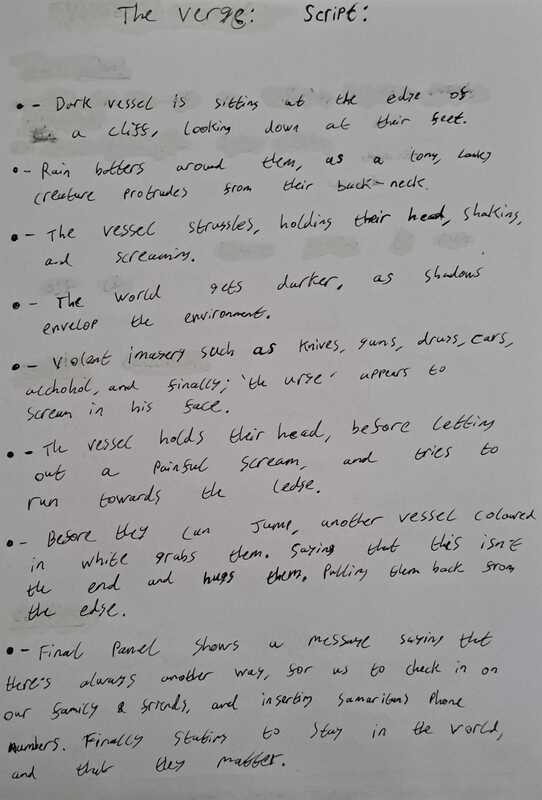 The Verge: Script:
• - Dark vessel is sitting at the edge of
a cliff, looking down at their feet.
• - Rain batters around them, as a long, lanky
creature protrudes from their back-neck.
• - The vessel struggles, holding their head, shaking,
and screaming.
• - The world gets darker, as shadows
envelop the environment.
• - Violent imagery such as knives, guns, drugs, cars,
alchohol, and finally; 'the urge' appears to
scream in his face.
• - The vessel holds their head, before letting
out a painful scream, and tries to
run towards the ledge.
• - Before they can jump, another vessel coloured
in white grabs them. Saying that this isn't
the end and hugs them. Pulling them back from
the edge.
• - Final Panel shows a message saying that
there's always another way, for us to check in on
our family & friends, and inserting Samaritans Phone
numbers. Finally stating to stay in the world,
and that they matter.